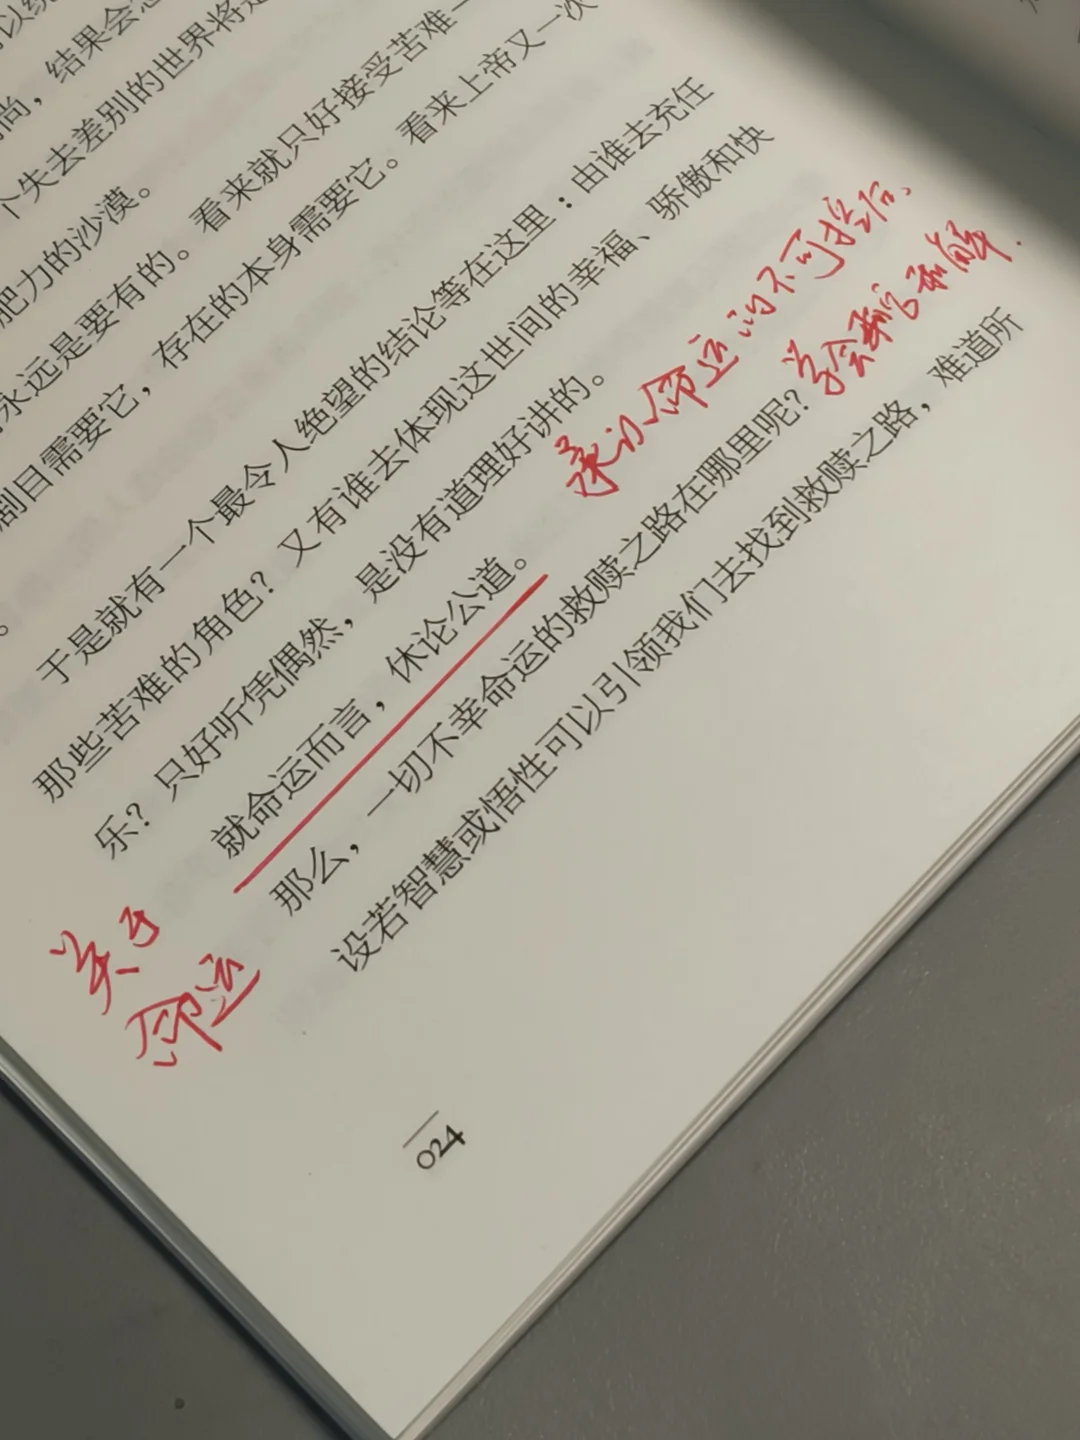 尚，结果会
个失去差别的世界将是
肥力的沙漠。
永远是要有的。看来就只好接受苦难
剧目需要它，存在的本身需要它。看来上帝又一次
。
于是就有一个最令人绝望的结论等在这里：由谁去充任
那些苦难的角色？又有谁去体现这世间的幸福、骄傲和快
乐？只好听凭偶然，是没有道理好讲的。
就命运而言，休论公道。
承认命运的不可控后、
学会和解.
那么，一切不幸命运的救赎之路在哪里呢？
设若智慧或悟性可以引领我们去找到救赎之路，难道所
关于
命运
024